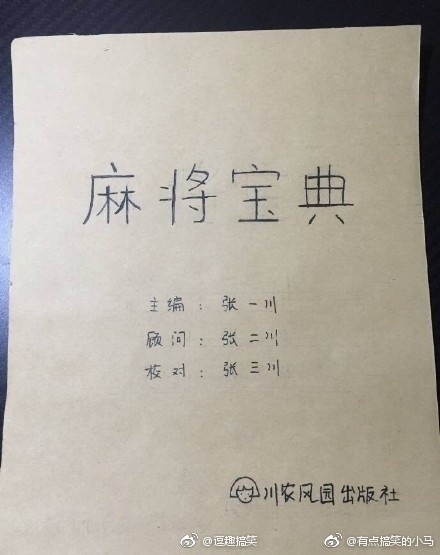 麻将宝典
主编：张一川
顾问：张二川
校对：张三川
川农风园出版社
@逗趣搞笑
@有点搞笑的小马